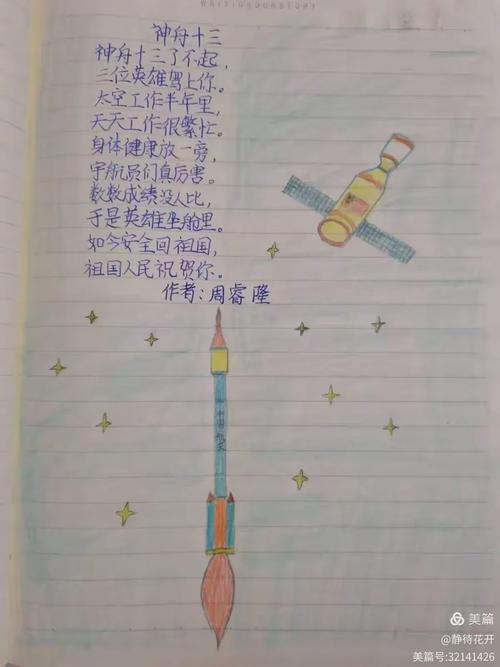 WRITINGBOOKSTORY
神舟十三
神舟十三了不起,
三位英雄驾上你。
太空工作半年里,
天天工作很繁忙。
身体健康放一旁,
宇航员们真厉害。
数数成绩没人比,
于是英雄坐舱里。
如今安全回祖国,
祖国人民祝贺你。
作者:周睿隆
中国航天
美篇
@静待花开
美篇号:32141426